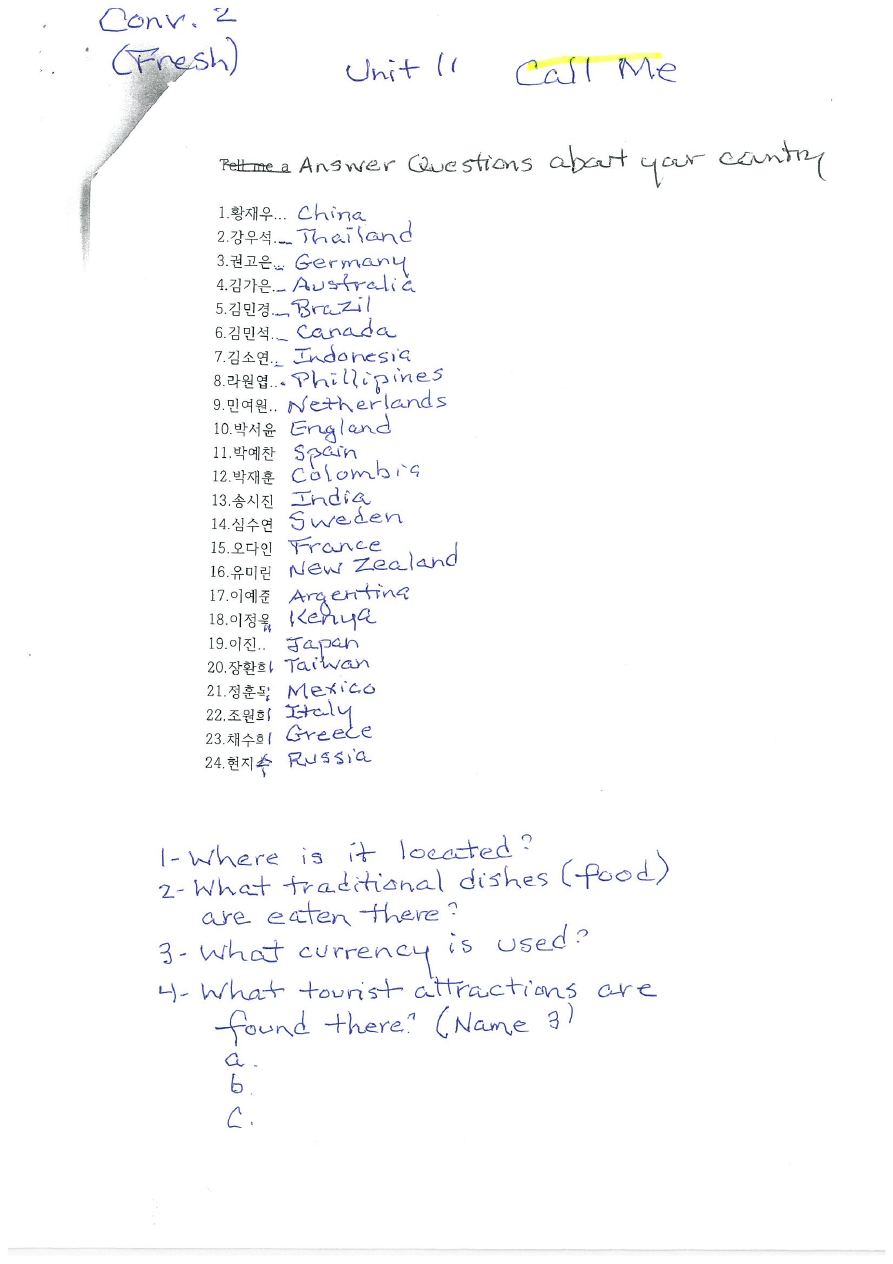 Conv. 2
(Fresh)
Unit 11 Call Me
Tell me a Answer Questions about your country
1.황재우... China
2.강우석... Thailand
3.권고은... Germany
4.김가은... Australia
5.김민경... Brazil
6.김민석... Canada
7.김소연... Indonesia
8.라원엽... Phillipines
9.민여원.. Netherlands
10.박서윤 England
11.박예찬 Spain
12.박재훈 Colombia
13.송시진 India
14.심수연 Sweden
15.오다인 France
16.유미린 New Zealand
17.이예준 Argentina
18.이정욱 Kenya
19.이진.. Japan
20.장환희 Taiwan
21.정훈 Mexico
22.조원희 Italy
23.채수희 Greece
24.현지수 Russia
1- Where is it located?
2- What traditional dishes (food)
are eaten there?
3- What currency is used?
4- What tourist attractions are
found there? (Name 3)
a.
b
c.